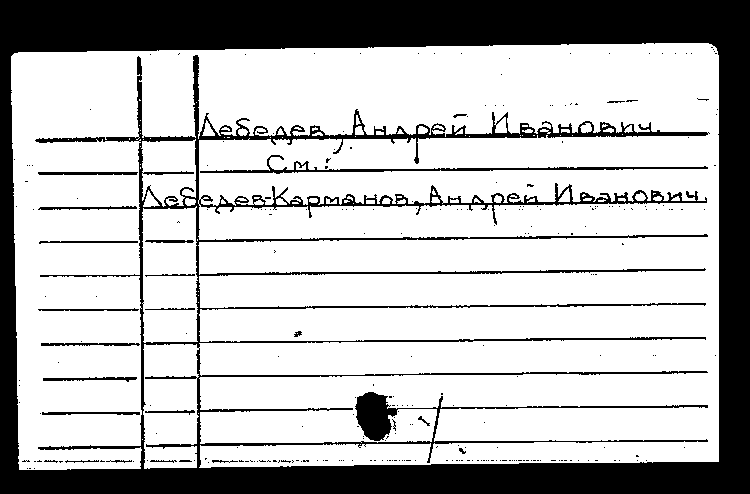 Лебедев, Андрей Иванович.
См.:
Лебедев-Карманов, Андрей Иванович.